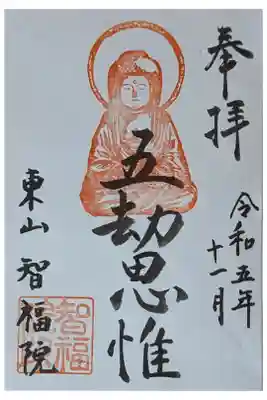 奉拝
令和五年
十一月
五劫思惟
東山 智福院
智福